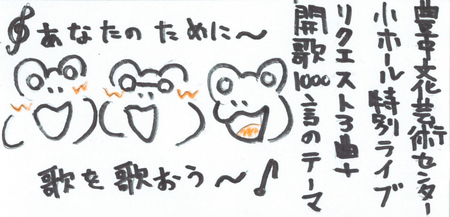 豊中文化芸術センター
小ホール特別ライブ
リクエスト3曲+
開歌1000言のテーマ
あなたのために～
歌を歌おう～♪